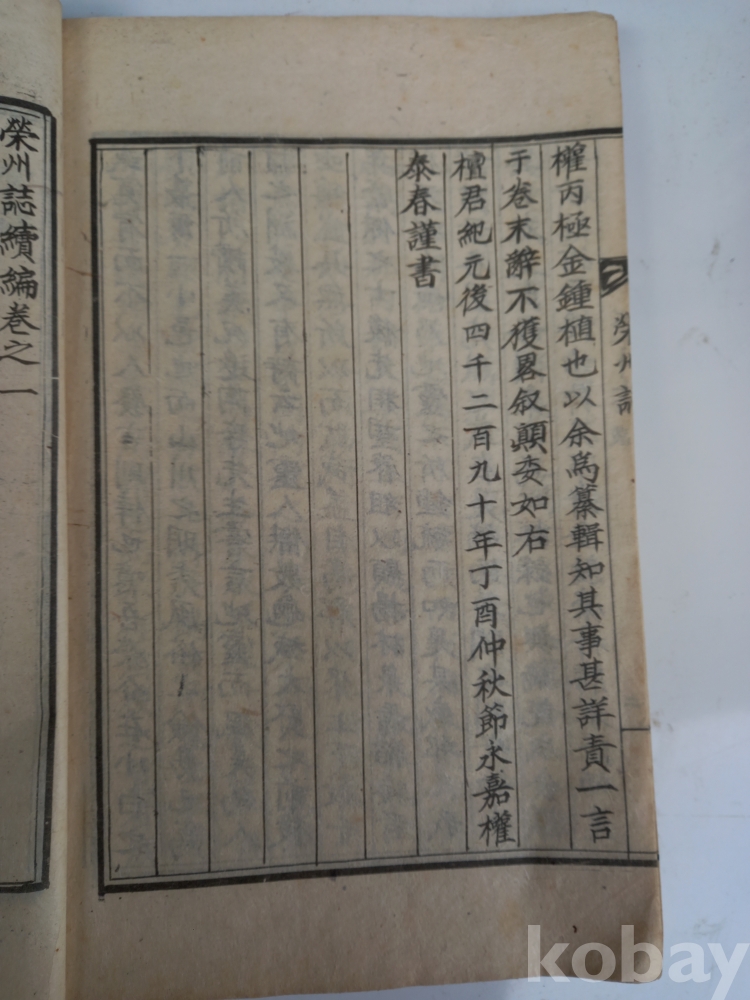 權丙極金鍾植也以余爲纂輯知其事甚詳責一言
于卷末辭不獲畧叙顚委如右
檀君紀元後四千二百九十年丁酉仲秋節永嘉權
泰春謹書
榮州誌
榮州誌續編卷之一
kobay